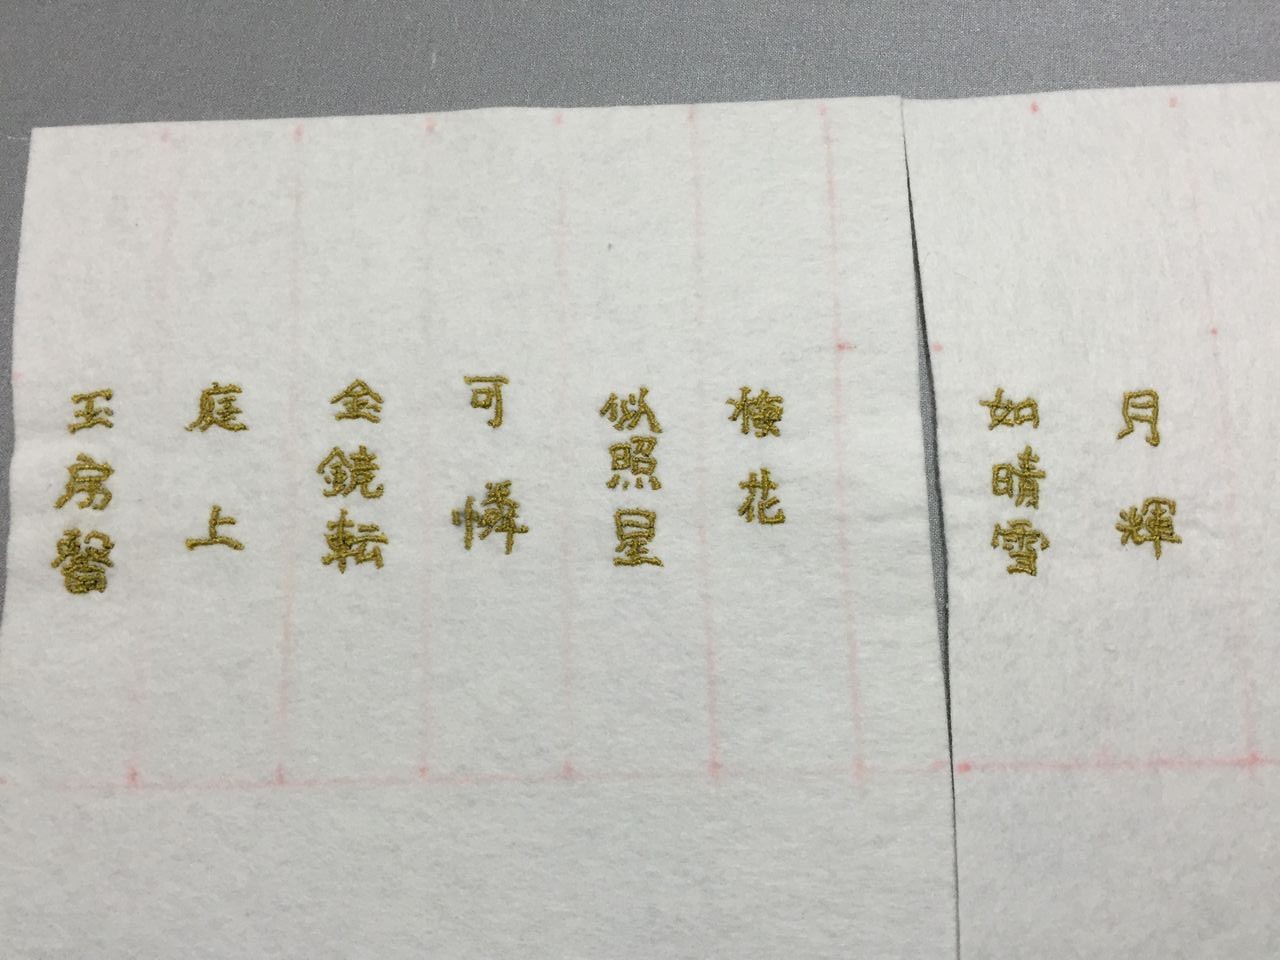 月輝
如晴雪
梅花
似照星
可憐
金鏡転
庭上
玉房馨